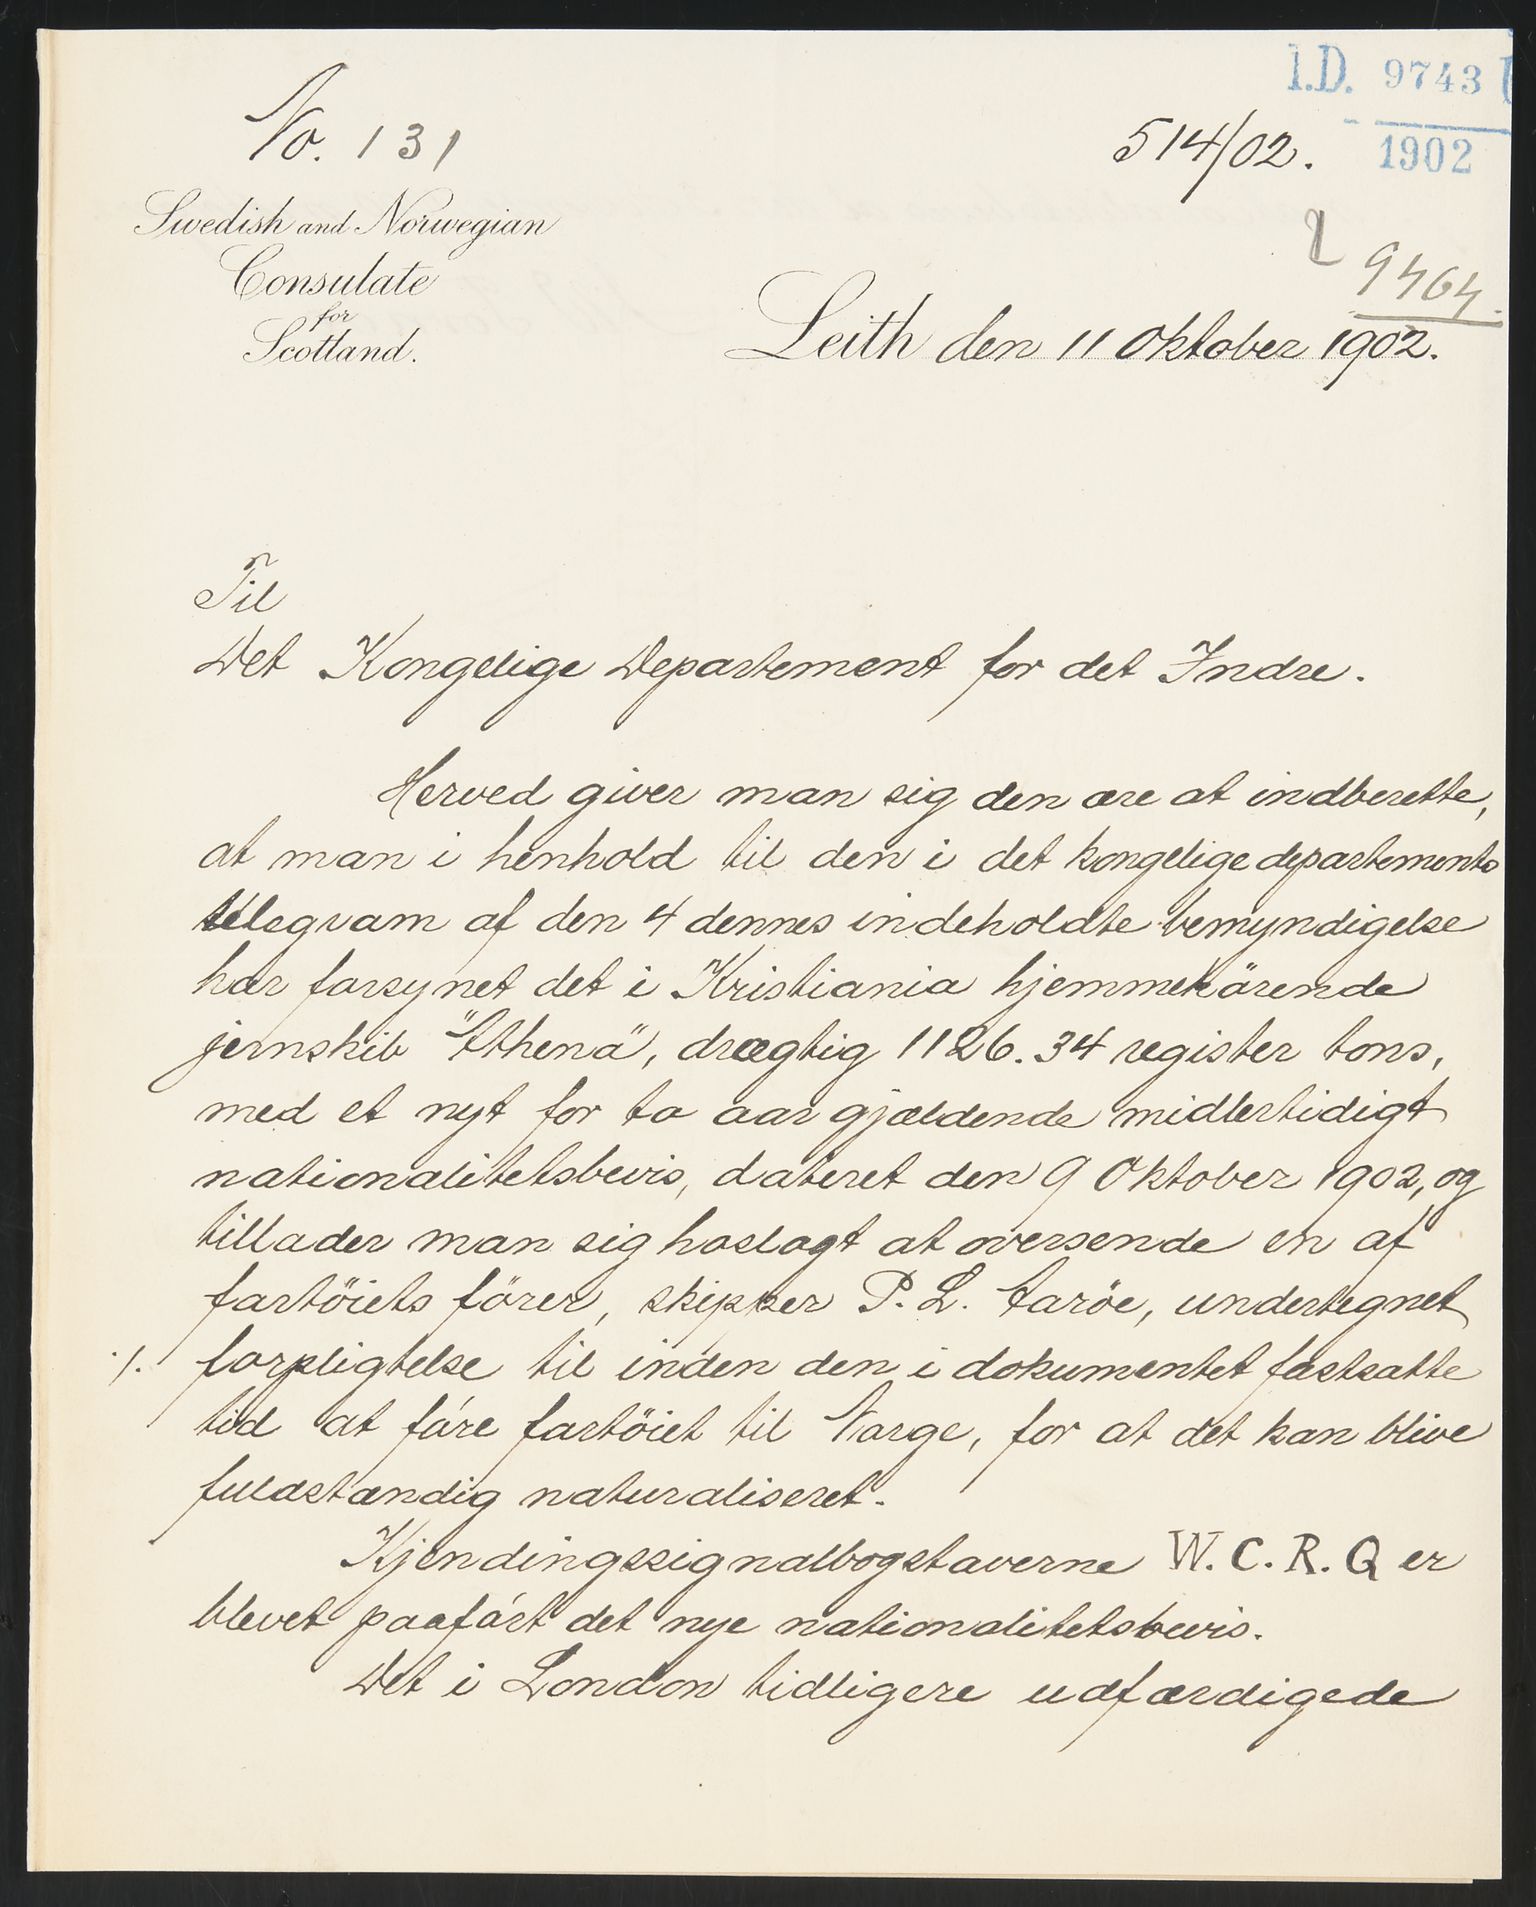 I.D. 9743
1902
No. 131
514/02.
Swedish and Norwegian
Consulate
for
Scotland.
Leith den 11 Oktober 1902.
Til
Det Kongelige Departement for det Indre.
Herved giver man sig den ære at indberette,
at man i henhold til den i det kongelige departements
telegram af den 4 dennes indeholdte bemyndigelse
har forsynet det i Kristiania hjemmehörende
jernskib "Athena", drægtig 1126.34 register tons,
med et nyt for to aar gjældende midlertidigt
nationalitetsbevis, dateret den 9 Oktober 1902, og
tillader man sig hoslagt at oversende en af
fartöiets förer, skipper P. L. Aaröe, undertegnet
./. forpligtelse til inden den i dokumentet fastsatte
tid at före fartöiet til Norge, for at det kan blive
fuldstændig naturaliseret.
Kjendingssignalbogstaverne W. C. R. Q er
blevet paaført det nye nationalitetsbevis.
Det i London tidligere udfærdigede